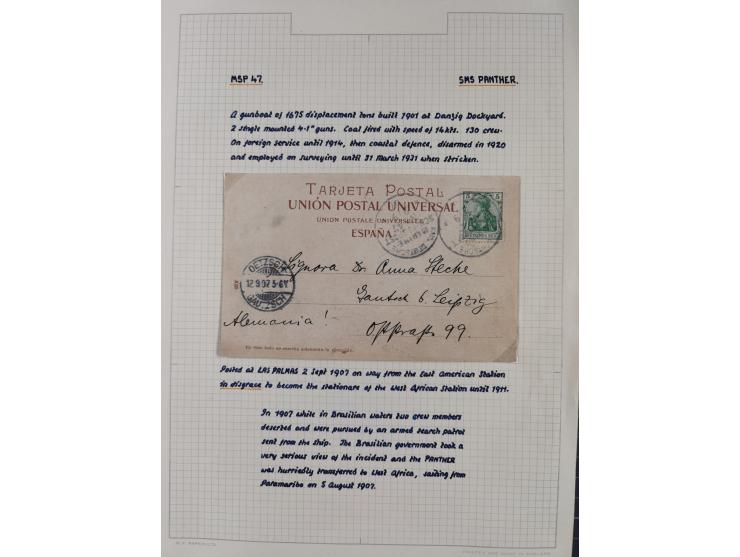 MSP 47. SMS PANTHER.
A gunboat of 1675 displacement tons built 1901 at Danzig Dockyard.
2 single mounted 4.1" guns. Coal fired with speed of 14kts. 130 crew.
On foreign service until 1914, then coastal defence, disarmed in 1920
and employed on surveying until 31 March 1931 when stricken.
TARJETA POSTAL
UNIÓN POSTAL UNIVERSAL
UNION POSTALE UNIVERSELLE
ESPAÑA
5
OETZSCH
12.9.07.5-6N.
GAUTZSCH
Signora Dr. Anna Steche
Gautsch b. Leipzig
Alemania!
Oststraße 99.
Posted at LAS PALMAS 2 Sept 1907 on way from the East American Station
in disgrace to become the stationare of the West African Station until 1911.
In 1907 while in Brasilian waters two crew members
deserted and were pursued by an armed search patrol
sent from the ship. The Brasilian government took a
very serious view of the incident and the PANTHER
was hurriedly transferred to West Africa, sailing from
Paramaribo on 5 August 1907.